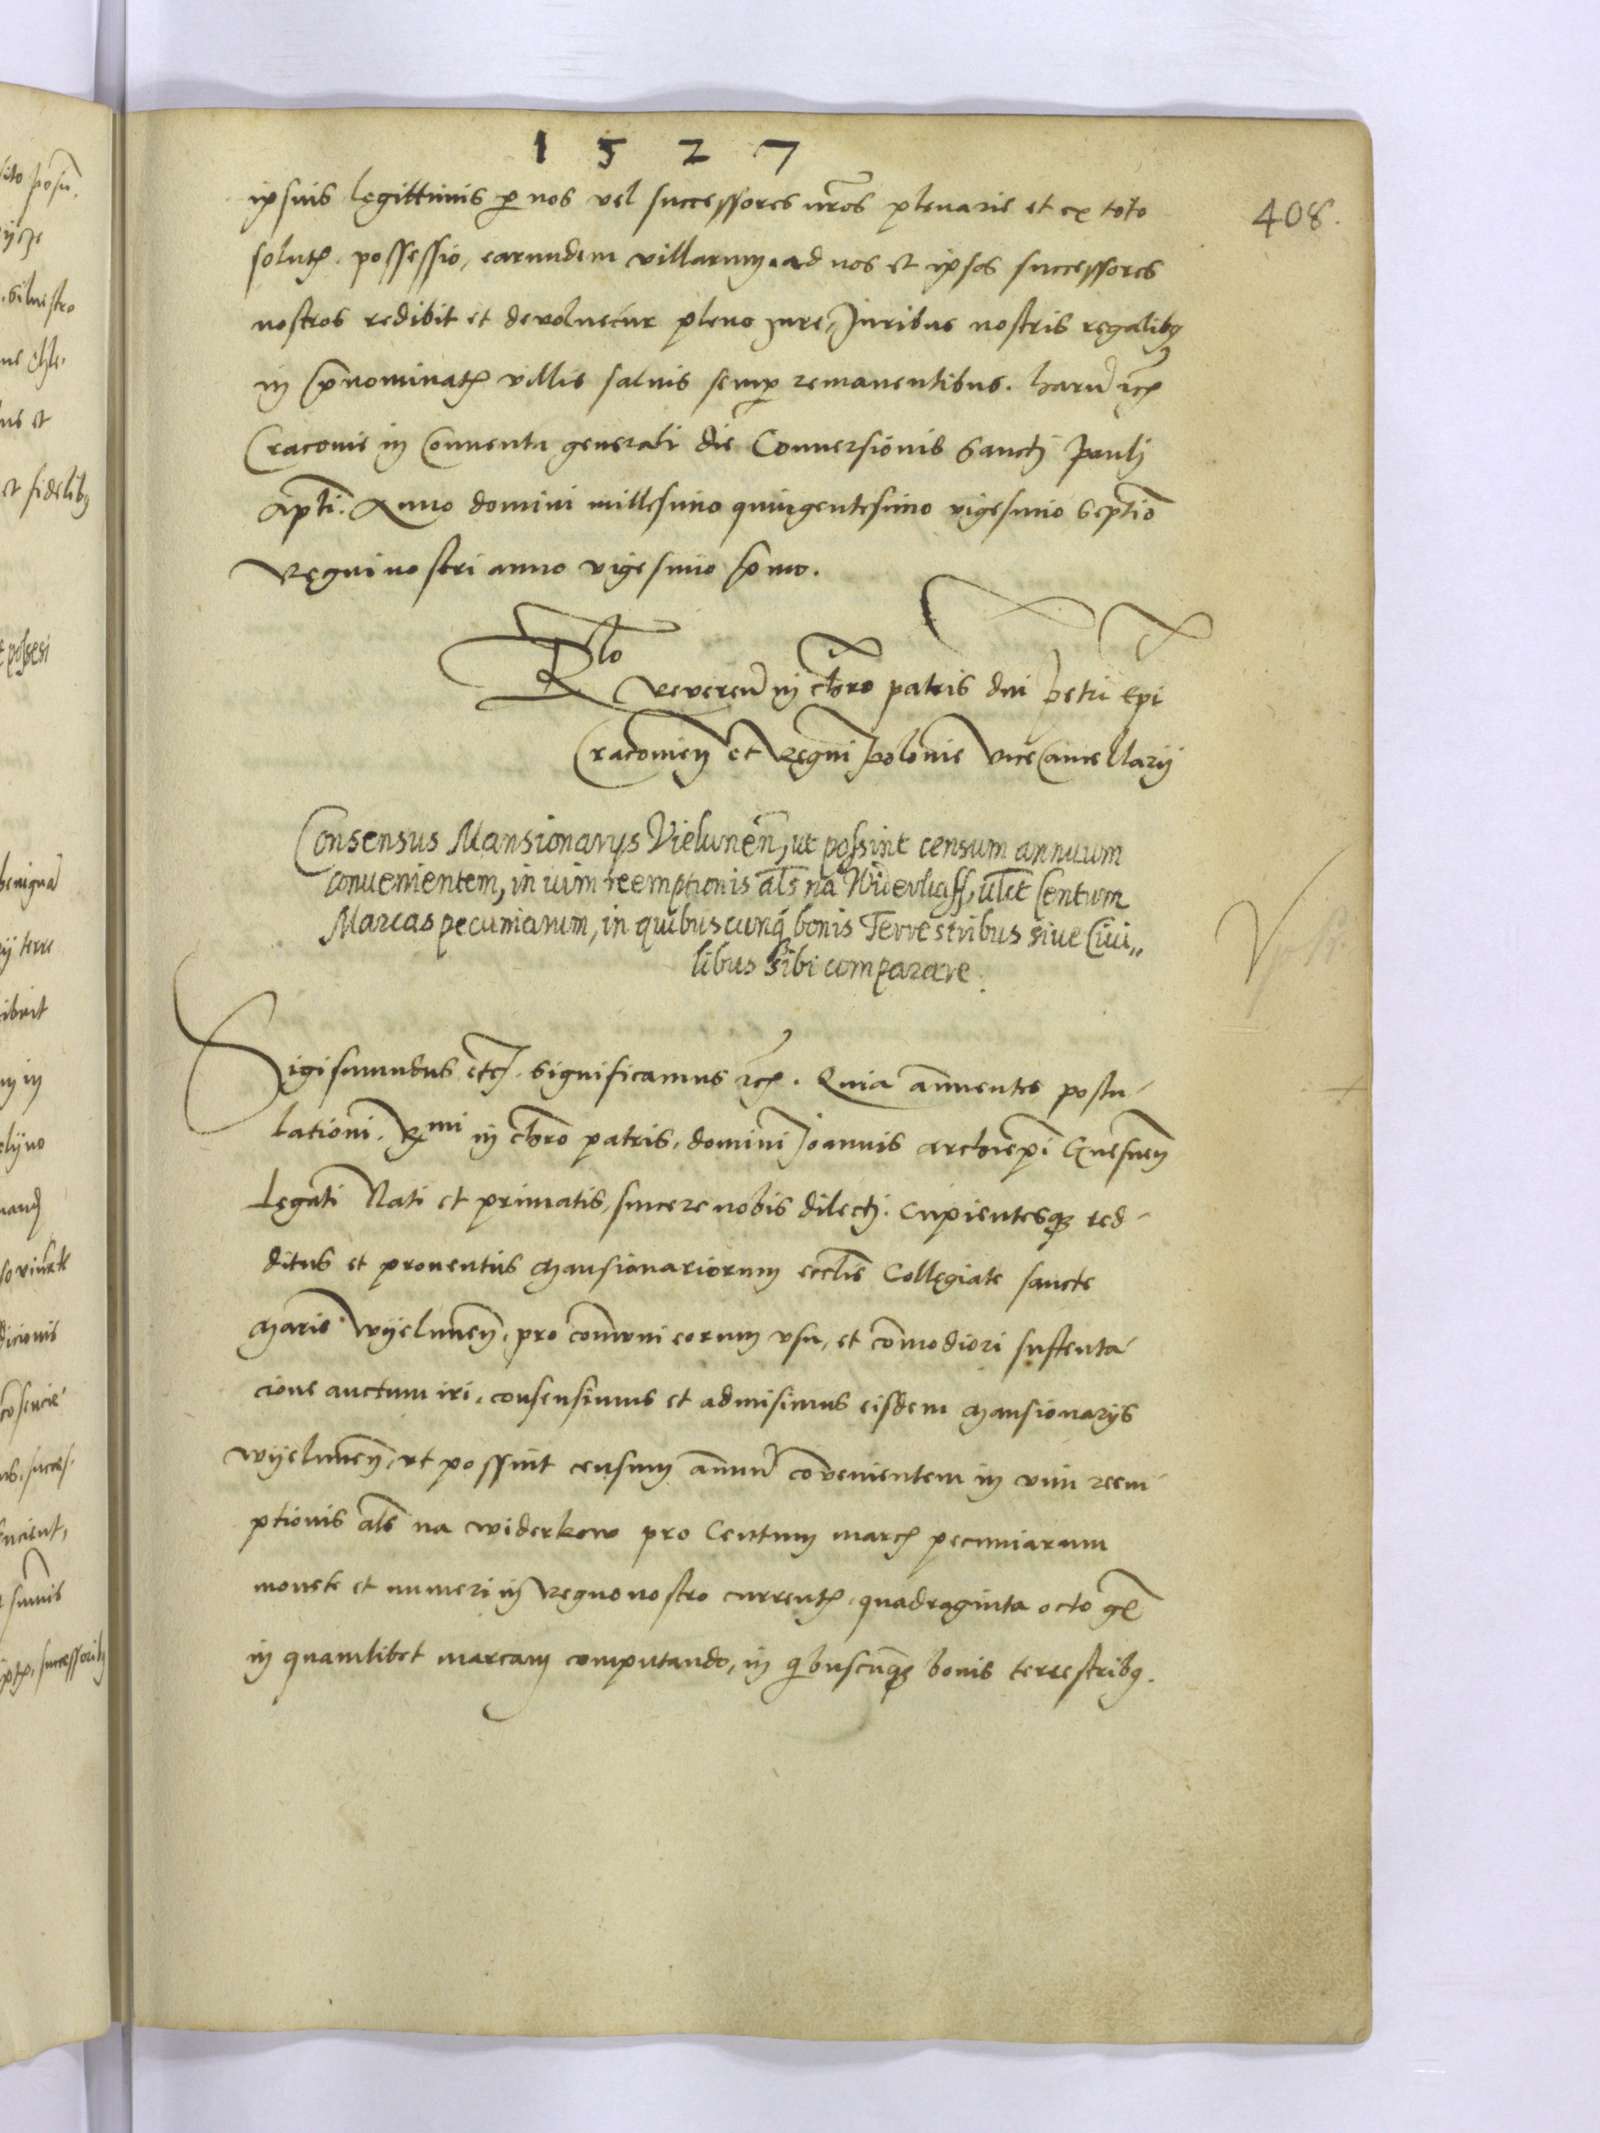 1 5 2 7
408.
ipsius legittimis p nos vel successores nros plenarie et ex toto
solut. possessio, earundem villarum ad nos et ipsos successores
nostros redibit et devolvetur pleno jure, Juribus nostris regalibq
in pnominat villis salvis semp remanentibus. harū etc
Cracovie in Conventu generali die Conversionis Sancti Pauli
apti. Anno domini millesimo quingentesimo vigesimo septīo
Regni nostri anno vigesimo pmo.
Rlo
reverēn in chro patris dni Petri Epi
Cracovien et Regni Polonie vice Cancellarij
Consensus Mansionarys Vielunen, ut possint censum annuum
convenientem, in vim reemptionis als na
Centum
Marcas pecuniarum, in quibuscunq bonis Terrestribus sive Civi„
libus sibi comparare.
Sigismundus etc. significamus etc. Quia annuentes postu-
lationi. Rmi in chro patris, domini Joannis archiepi Gnesnen
Legati Nati et primatis, sincere nobis dilecti. Cupientesq red-
ditus et proventus mansionariorum eccliē Collegiate sancte
Marie wyelunen, pro comuni eorum usu, et comodiori sustenta-
cione auctum iri, consensimus et admisimus eisdem mansionarys
wyelunen, ut possint censum annuū convenientem in vim reem-
ptionis als na widerkow pro Centum marc pecuniarum
monete et numeri in Regno nostro current, quadraginta octo gr
in quamlibet marcam computando, in qbuscunq bonis terrestribq.